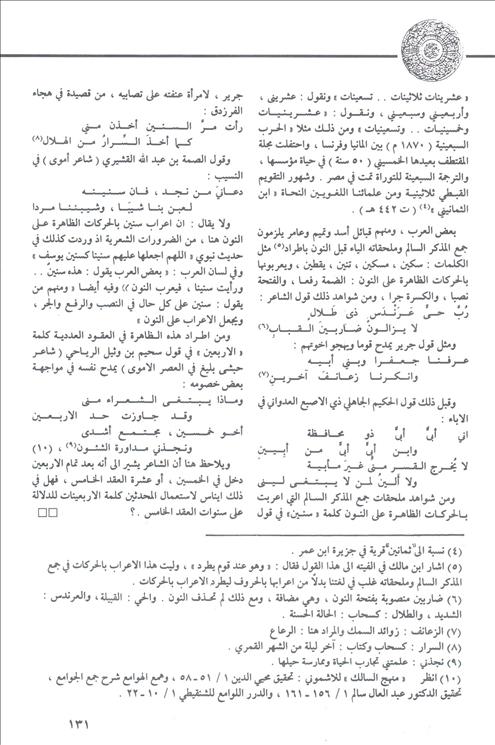 « عشرينات ثلاثينات . . تسعينات » ونقول : عشريني ،
وأربعيني وسبعيني ، ونقـول : « عشـرينيـات
وخمسينيـات . . وتسعينيات » ومن ذلك مثلا « الحـرب
السبعينية ( ١٨٧٠ م ) بين المانيا وفرنسا ، واحتفلت مجلة
المقتطف بعيدها الخمسيني ( ٥٠ سنة ) في حياة مؤسسها ،
والترجمة السبعينية للتوراة تمت في مصر . وشهور التقويم
القبـطي ثلاثينيـة ومن علمائنـا اللغـويـين النحـاة « ابن
الثمانيني »(٤) ( ت ٤٤٢ هـ ) .
بعض العرب ، ومنهم قبائل أسد وتميم وعامر يلزمون
جمع المذكر السالم وملحقاته الياء قبل النون باطراد(٥) مثل
الكلمات : سكين ، مسكين ، تنين ، يقطين ، ويعربونها
بالحركات الظاهرة على النون : الضمة رفعـا ، والفتحة
نصبا ، والكسرة جرا ، ومن شواهد ذلك قول الشاعر :
رُبَّ حـيٍّ عَـرَنْـدَسٍ ذى طَـلالٍ
لا يـزالـونَ ضـاربـينَ القـبـابِ(٦)
ومثل قول جرير يمدح قوما ويهجو اخوتهم :
عـرفـنـا جـعـفـرا وبـني أبـيـه
وانـكـرنـا زعـانـفَ آخـريـنِ(٧)
وقبل ذلك قول الحكيم الجاهلي ذي الاصبع العدواني في
الاباء :
اني أبيٌّ أبيٌّ ذو محـافـظـة
وابـن أبيٍّ أبيٍّ مـن أبـيـينِ
لا يُخـرج القـسـر مـني غـيـرَ مـأبـيـة
ولا ألـينُ لمـن لا يـبـتـغـي لـيـني
ومن شواهد ملحقات جمع المذكر السالم التي اعربت
بـالحركـات الظاهرة على النون كلمة « سنين » في قول
جرير ، لامرأة عنفته على تصابيه ، من قصيدة في هجاء
الفرزدق :
رأت مـرَّ الـسـنـين أخـذن مـني
كـما أخـذ السَّـرار مـن الهـلال(٨)
وقول الصمة بن عبد الله القشيري ( شاعر أموي ) في
النسيب :
دعـانيَ مـن نجـد ، فـان سـنـيـنـه
لـعـبن بنـا شيبًـا ، وشيبننـا مـردا
ولا يقال : ان اعراب سنين بالحركات الظاهرة على
النون هنا ، من الضرورات الشعرية اذ وردت كذلك في
حديث نبوي « اللهم اجعلها عليهم سنينا كسنين يوسف »
وفي لسان العرب : « بعض العرب يقول : هذه سنينٌ . .
ورأيت سنينا ، فيعرب النون » وفيه أيضا « ومنهم من
يقول : سنين على كل حال في النصب والرفع والجر ،
ويجعل الاعراب على النون »
ومن اطراد هذه الظاهرة في العقود العددية كلمة
« الاربعين » في قول سحيم بن وثيل الرياحي ( شاعر
حبشي بليغ في العصر الاموى ) يمدح نفسه في مواجهة
بعض خصومه :
وماذا يـبـتـغـى الشـعـراء مـنى
وقـد جـاوزت حـد الاربـعـين
أخـو خـمسـين ، مجـتـمـع أشـدى
ونجـذني مـداورة الشـئـون(٩) ، (١٠)
ويلاحظ هنا أن الشاعر يشير الى أنه بعد تمام الاربعين
دخل في الخمسين ، أو عشرة العقد الخامس ، فهل في
ذلك ايناس لاستعمال المحدثين كلمة الاربعينات للدلالة
على سنوات العقد الخامس . ؟
(٤) نسبة الى « ثمانين » قرية في جزيرة ابن عمر .
(٥) اشار ابن مالك في الفيته الى هذا القول فقال : « وهو عند قوم يطرد » ، وليت هذا الاعراب بالحركات في جمع
المذكر السالم وملحقاته غلب في لغتنا بدلًا من اعرابها بالحروف ليطرد الاعراب بالحركات .
(٦) ضاربين منصوبة بفتحة النون ، وهي مضافة ، ومع ذلك لم تحذف النون . والحي : القبيلة ، والعرندس :
الشديد ، والطلال : كسحاب : الحالة الحسنة .
(٧) الزعانف : زوائد السمك والمراد هنا : الرعاع
(٨) السرار : كسحاب وكتاب : آخر ليلة من الشهر القمري .
(٩) نجذني : علمتني تجارب الحياة وممارسة حيلها .
(١٠) انظر « منهج السالك » للاشموني : تحقيق محيي الدين ١ / ٥١ - ٥٨ ، وهمع الهوامع شرح جمع الجوامع ،
تحقيق الدكتور عبد العال سالم ١ / ١٥٦ - ١٦١ ، والدرر اللوامع للشنقيطي ١ / ١٠ - ٢٢ .
١٣١